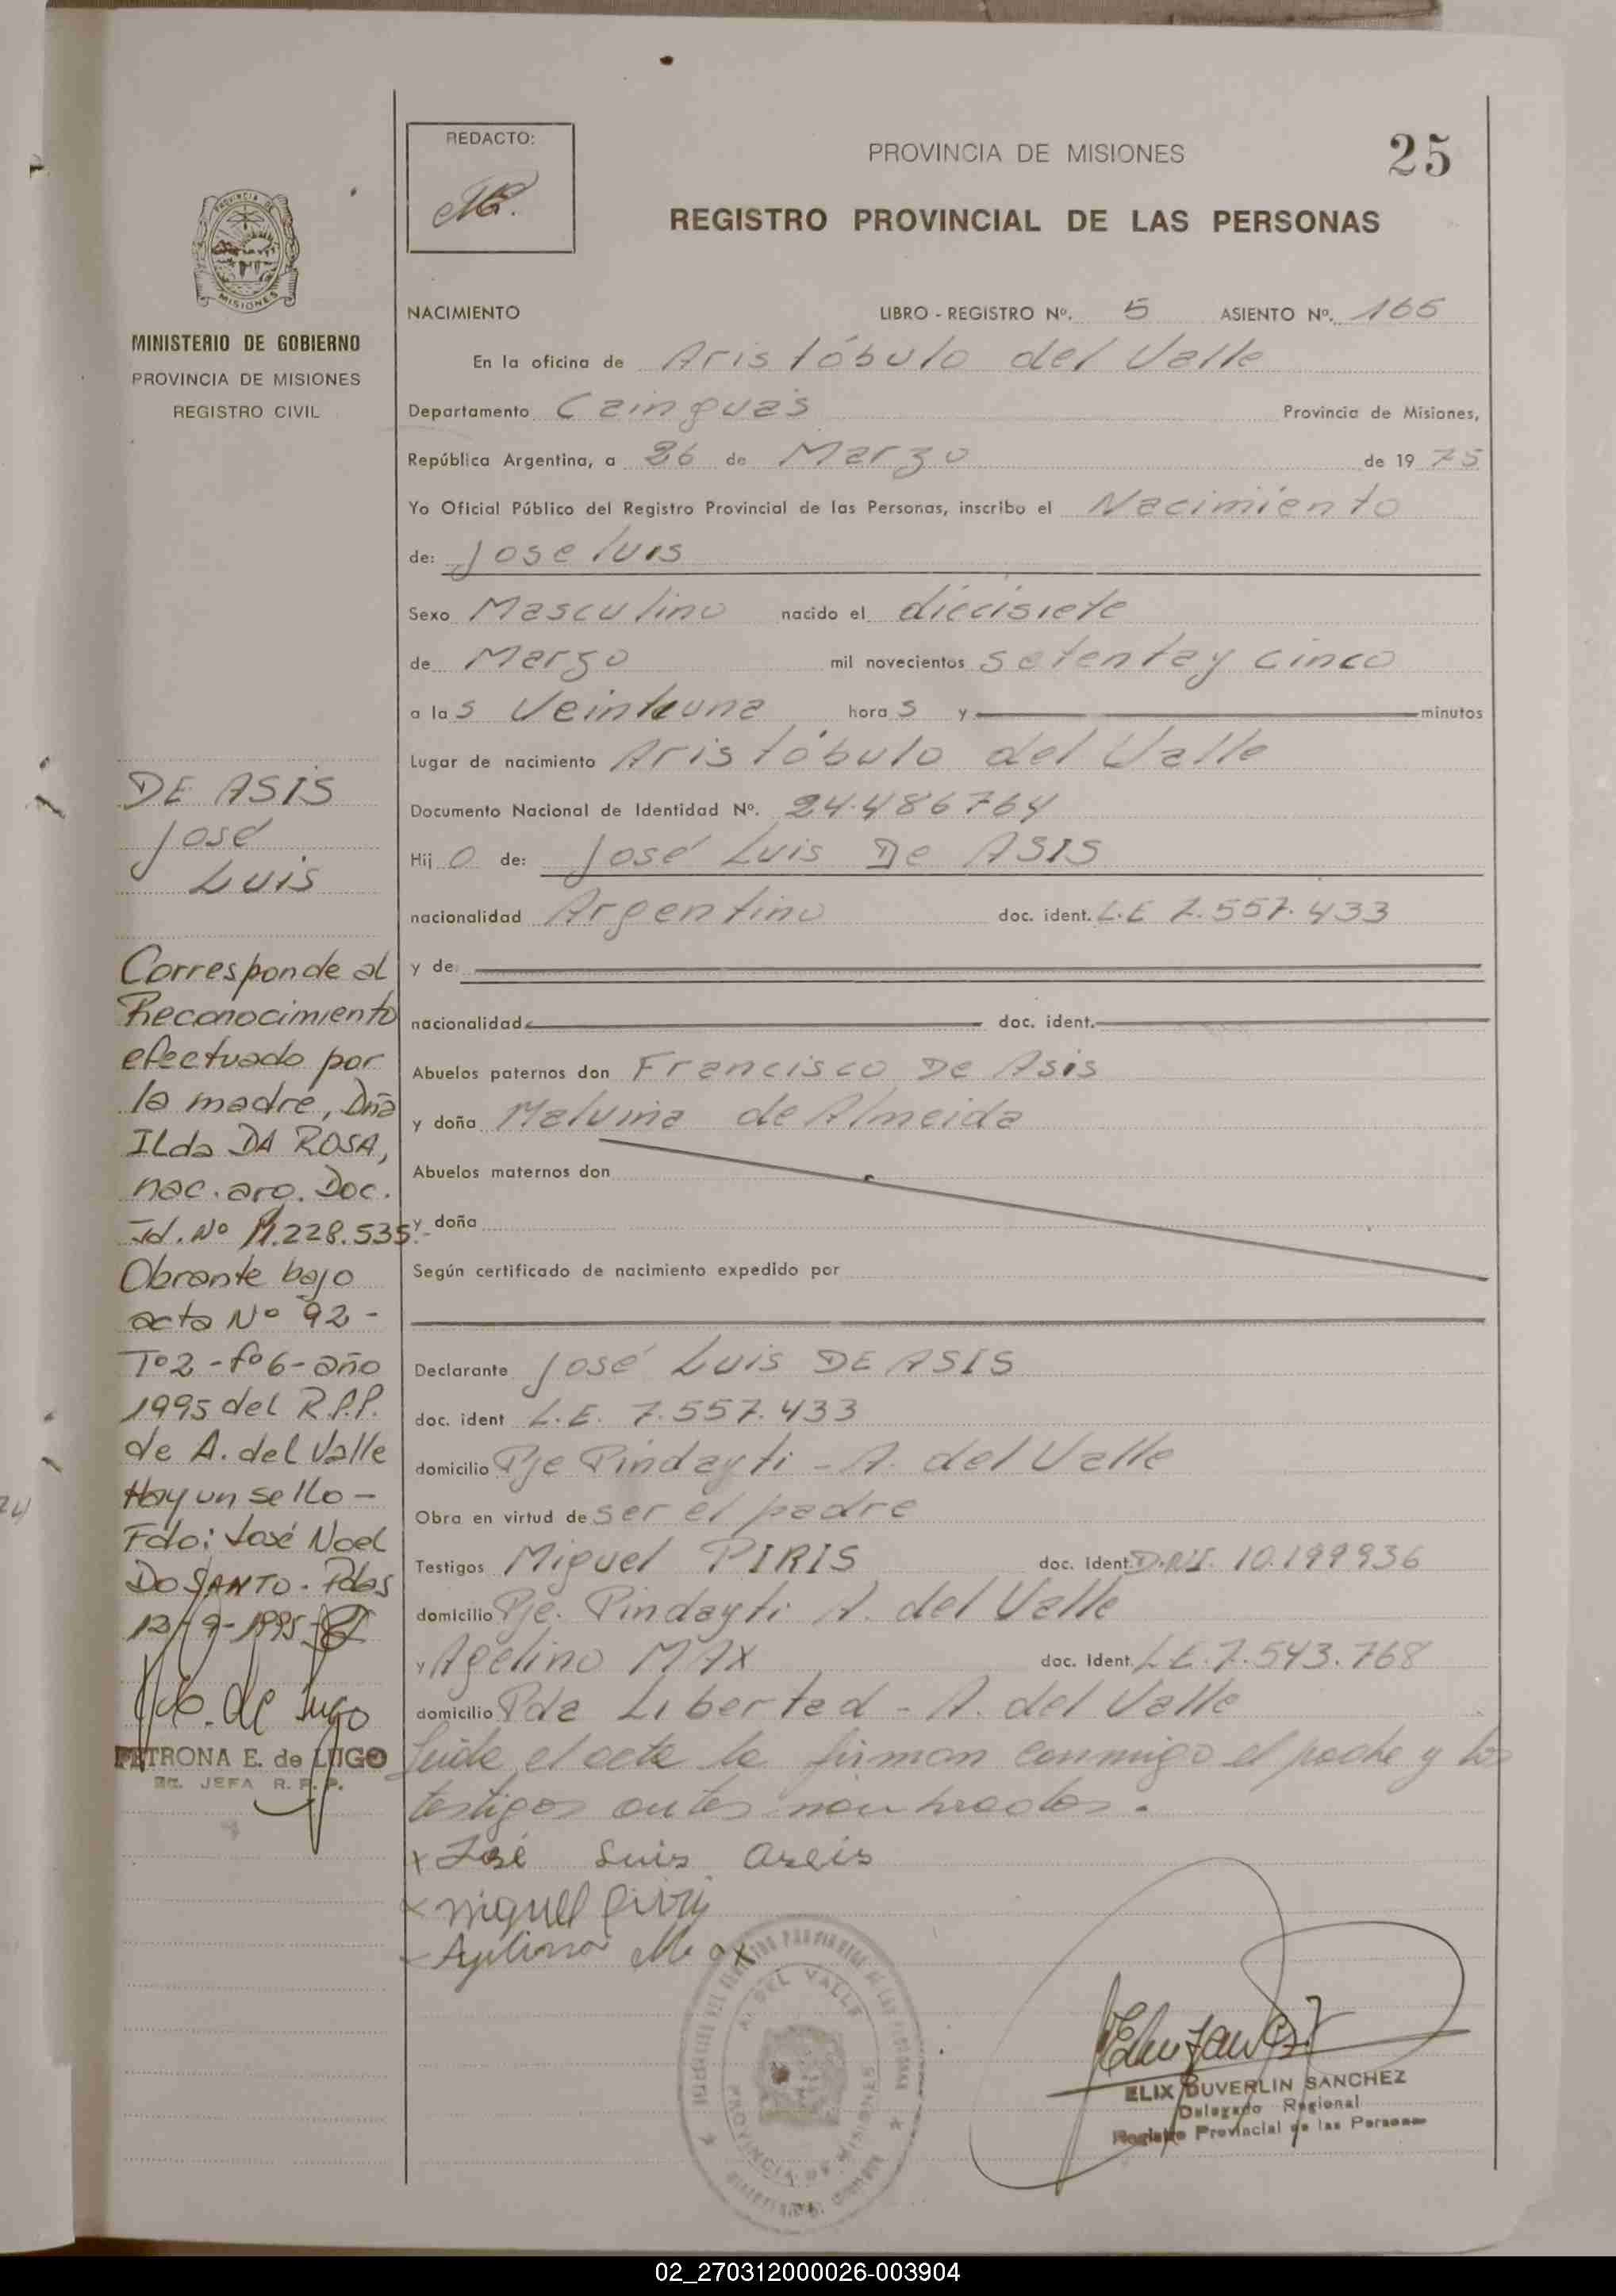 25
REDACTO:
PROVINCIA DE MISIONES
REGISTRO PROVINCIAL DE LAS PERSONAS
PROVINCIA DE
MISIONES
MINISTERIO DE GOBIERNO
PROVINCIA DE MISIONES
REGISTRO CIVIL
NACIMIENTO LIBRO - REGISTRO Nº. 5 ASIENTO Nº. 165
En la oficina de Aristóbulo del Valle
Departamento Cainguás Provincia de Misiones,
República Argentina, a 26 de Marzo de 19 75
Yo Oficial Público del Registro Provincial de las Personas, inscribo el Nacimiento
de: Jose luis
Sexo Masculino nacido el diecisiete
de Marzo mil novecientos setenta y cinco
a las veintiuna horas y minutos
Lugar de nacimiento Aristóbulo del Valle
Documento Nacional de Identidad Nº. 24.486764
Hijo de: José Luis De ASIS
nacionalidad Argentino doc. ident. L.E 7.557.433
y de
nacionalidad doc. ident.
Abuelos paternos don Francisco De Asis
y doña Malvina de Almeida
Abuelos maternos don
y doña
Según certificado de nacimiento expedido por
Declarante José Luis DE ASIS
doc. ident L.E. 7.557.433
domicilio Pje Pindayti - A. del Valle
Obra en virtud de ser el padre
Testigos Miguel PIRIS doc. ident. D.N.I. 10.199936
domicilio Pje. Pindayti A. del Valle
y Agelino MAX doc. Ident. L.E. 7.543.768
domicilio Pda Libertad - A. del Valle
Leida el acta la firman conmigo el padre y los
testigos antes nombrados.
x José Luis Aseis
x miguel Piris
- Agelino Max
DE ASIS
José
Luis
Corresponde al
Reconocimiento
efectuado por
la madre, Dña
ILda DA ROSA,
nac. arg. Doc.
Id. Nº 11.228.535.-
Obrante bajo
acta Nº 92 -
Tº2 - fº6 - año
1995 del R.P.P.
de A. del Valle
Hay un sello -
Fdo: José Noel
DO SANTO - Pdas
13-9-1995
de Lugo
PETRONA E. de LUGO
JEFA R.P.P.
A. DEL VALLE
PROVINCIA DE MISIONES
ELIX DUVERLIN SANCHEZ
Delegado Regional
Registro Provincial de las Personas
02_270312000026-003904